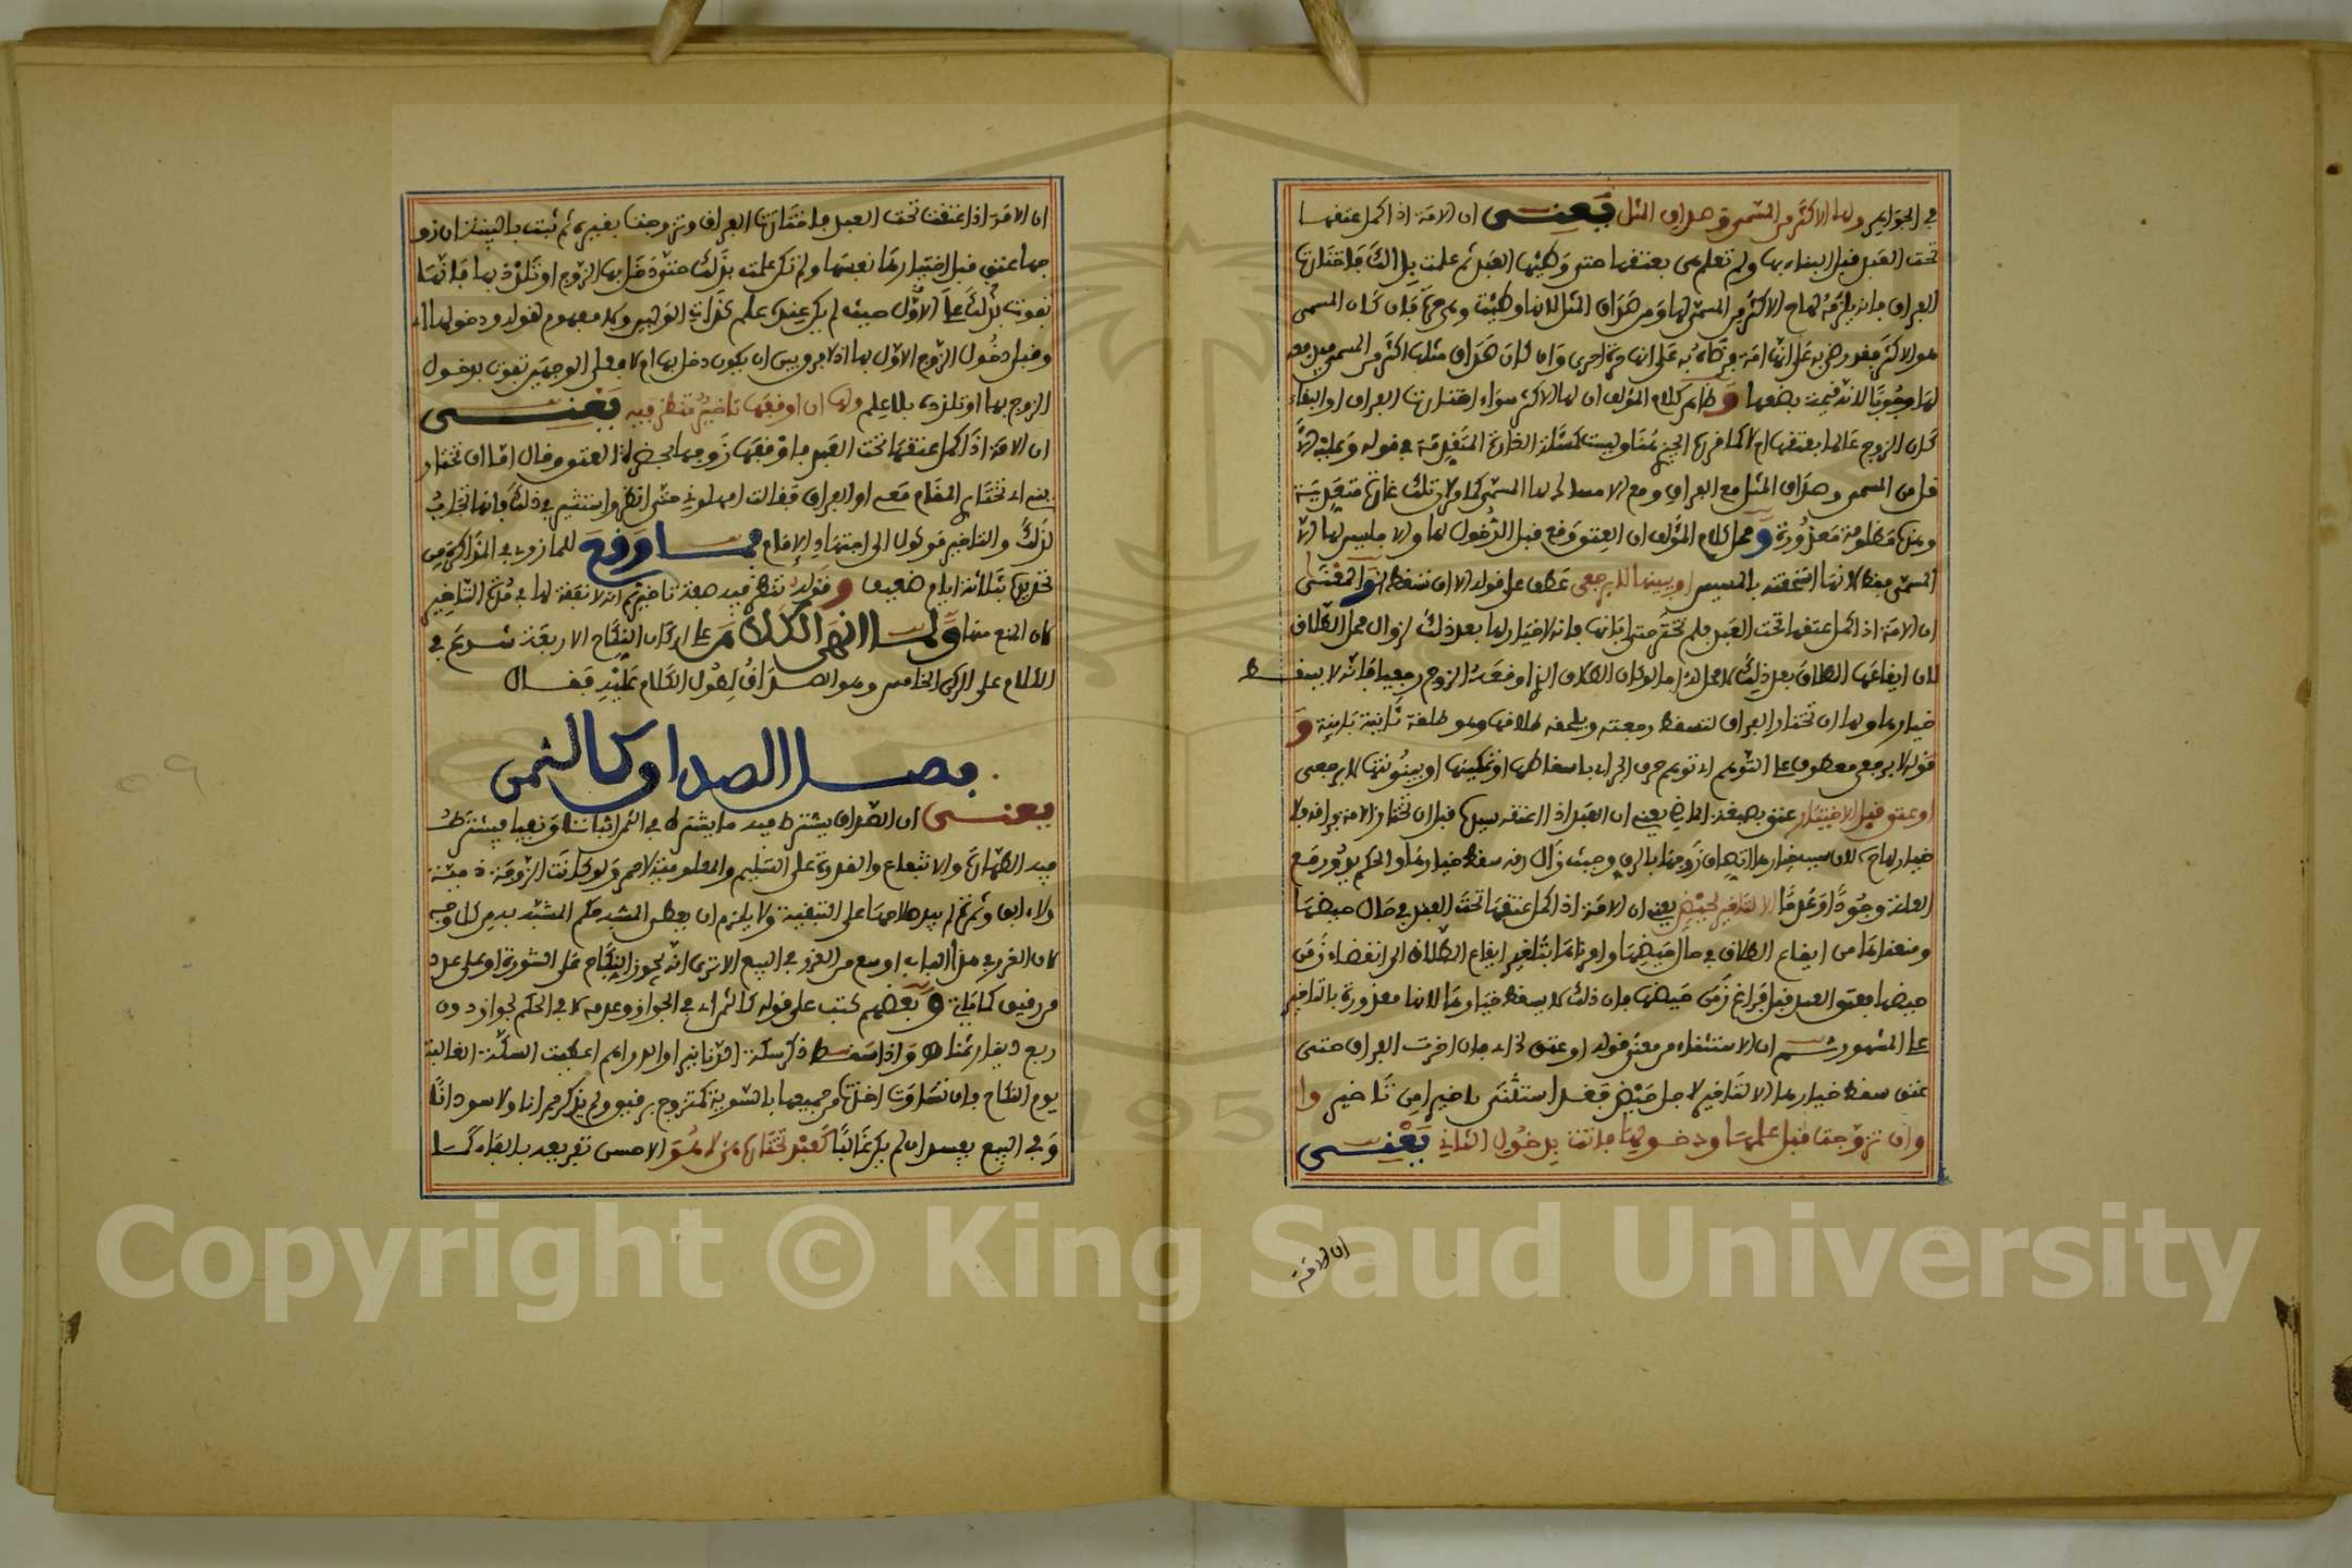 في الجواهر ولها الاكثر من المسمى وصداق المثل يعني ان الامة اذا كمل عتقها
تحت العبد قبل البناء بها ولم تعلم هي بعتقها حتى وطئها العبد ثم علمت بذالك فاختارت
الفراق فانه يلزمه لها ح الاكثر من المسمى لها ومن صداق المثل لانها وطئت وهي حرة فان كان المسمى
هو الاكثر فقد رضي به على انها امة فرضاه به على انها حرة احرى وان كان صداق مثلها اكثر من المسمى
لها وجوبا لانه قيمة بضعها وظاهر كلام المؤلف ان لها الاكثر سواء اختارت الفراق او البقاء
كان الزوج عالما بعتقها ام لا
المسمى وصداق المثل مع الفراق ومع
ومحل كلام المؤلف ان العتق وقع قبل الدخول لها والا فليس لها الا
المسمى فقط لانها استحقته بالمسيس او يبينها لا برجعي عطف على قوله الا ان تسقطه والمعنى
ان الامة اذا كمل عتقها تحت العبد فلم تختر حتى ابانها فانه لا خيار لها بعد ذلك لزوال محل الطلاق
لان ايقاعها الطلاق بعد ذلك لا محل له اما لو كان الطلاق الذي اوقعه الزوج رجعيا فانه لا يسقط
خيارها ولها ان تختار الفراق لتسقط رجعته ويلحقه طلاقها وهو طلقة ثانية باينة و
قوله لا برجعي معطوف على التوهم اي توهم حرف الجر اي باسقاطها او تمكينها او بينونتها لا برجعي
او عتق قبل الاختيار عتق بصيغة الماضي يعني ان العبد اذا اعتقه سيده قبل ان تختار الامة فراقه فلا
خيار لها ح لان سبب خيارها اتصاف زوجها بالرق وحيث زال رقه سقط خيارها والحكم يدور مع
العلة وجودا وعدما الا لتاخير لحيض يعني ان الامة اذا كمل عتقها تحت العبد في حال حيضها
ومنعناها من ايقاع الطلاق في حال حيضها وامرناها بتاخير ايقاع الطلاق الى انقضاء زمن
حيضها فعتق العبد قبل فراغ زمن حيضها فان ذلك لا يسقط خيارها لانها معذورة بالتاخير
على المشهور ثم ان الاستثناء من معنى قوله او عتق لخ اي فان اخرت الفراق حتى
عتق سقط خيارها الا لتاخير لاجل حيض فقد استثنى تاخيرا من تاخير وا
وان تزوجت قبل علمها ودخولها فاتت بدخول الثاني يعني
ان الامة
ان الامة اذا عتقت تحت العبد فاختارت الفراق وتزوجت بغيره ثم ثبت بالبينة ان زو
جها عتق قبل اختيارها نفسها ولم تكن علمت بذلك حتى دخل بها الزوج او تلذذ بها فانها
تفوت بذلك على الاول حيث لم يكن عنده علم كذات الوليين ولا مفهوم لقوله ودخولها اي
وقبل دخول الزوج الاول بها اذ لا فرق بين ان يكون دخل بها ام لا فعلى الوجهين تفوت بدخول
الزوج بها او تلذذه بلا علم ولها ان اوقفها تاخير تنظر فيه يعني
ان الامة اذا كمل عتقها تحت العبد فاوقفها زوجها بحضرة العتق وقال اما ان تختار
يني اي تختار المقام معه او الفراق فقالت امهلوني حتى انظر واستشير في ذلك فانها تجاب
لذلك والتاخير موكول الى اجتهاد الامام فما وقع للمازوني في المذاكرة من
تحديده بثلاثة ايام ضعيف وقوله تنظر فيه صفة تاخير ثم انه لا نفقة لها في مدة التاخير
لان المنع منها ولما انهى الكلام على اركان النكاح الاربعة شرع في
الكلام على الركن الخامس وهو الصداق لطول الكلام عليه فقال
فصل الصداق كالثمن
يعني ان الصداق يشترط فيه ما يشترط في الثمن اثباتا ونفيا فيشترط
فيه الطهارة والانتفاع والقدرة على التسليم والمعلومية لا خمر ولو كانت الزوجة ذمية
ولا ابق وثمرة لم يبد صلاحها على التبقية ولا يلزم ان يعطى المشبه حكم المشبه به من كل وجه
لان الغرر في هذا الباب اوسع من الغرر في البيع الا ترى انه يجوز النكاح على الشورة او على عدد
من رقيق كما ياتي وبعضهم كتب على قوله كالثمن اي في الجواز وعدمه لا في الحكم لجواز دون
ربع دينار ثمنا واذا سقط ذكر سكة الدنانير او الدراهم اعطيت السكة الغالبة
يوم النكاح فان تساوت اخذت من جميعها بالسوية كمتزوج برقيق ولم يذكر حمرانا ولا سودانا
وفي البيع يفسد ان لم يكن غالبا كعبد تختاره هي لا هو الاحسن تفريعه بالفاء كما